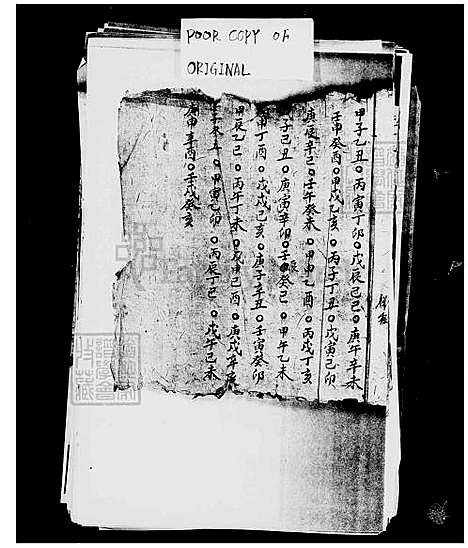 POOR COPY OF
ORIGINAL
甲子乙丑。丙寅丁卯。戊辰己巳。庚午辛未
壬申癸酉。甲戌乙亥。丙子丁丑。戊寅己卯
庚辰辛巳。壬午癸未。甲申乙酉。丙戌丁亥
子己丑。庚寅辛卯。壬辰癸巳。甲午乙未
申丁酉。戊戌己亥。庚子辛丑。壬寅癸卯
甲辰乙巳。丙午丁未。戊申己酉。庚戌辛亥
壬子癸丑。甲寅乙卯。丙辰丁巳。戊午己未
庚申辛酉。壬戌癸亥